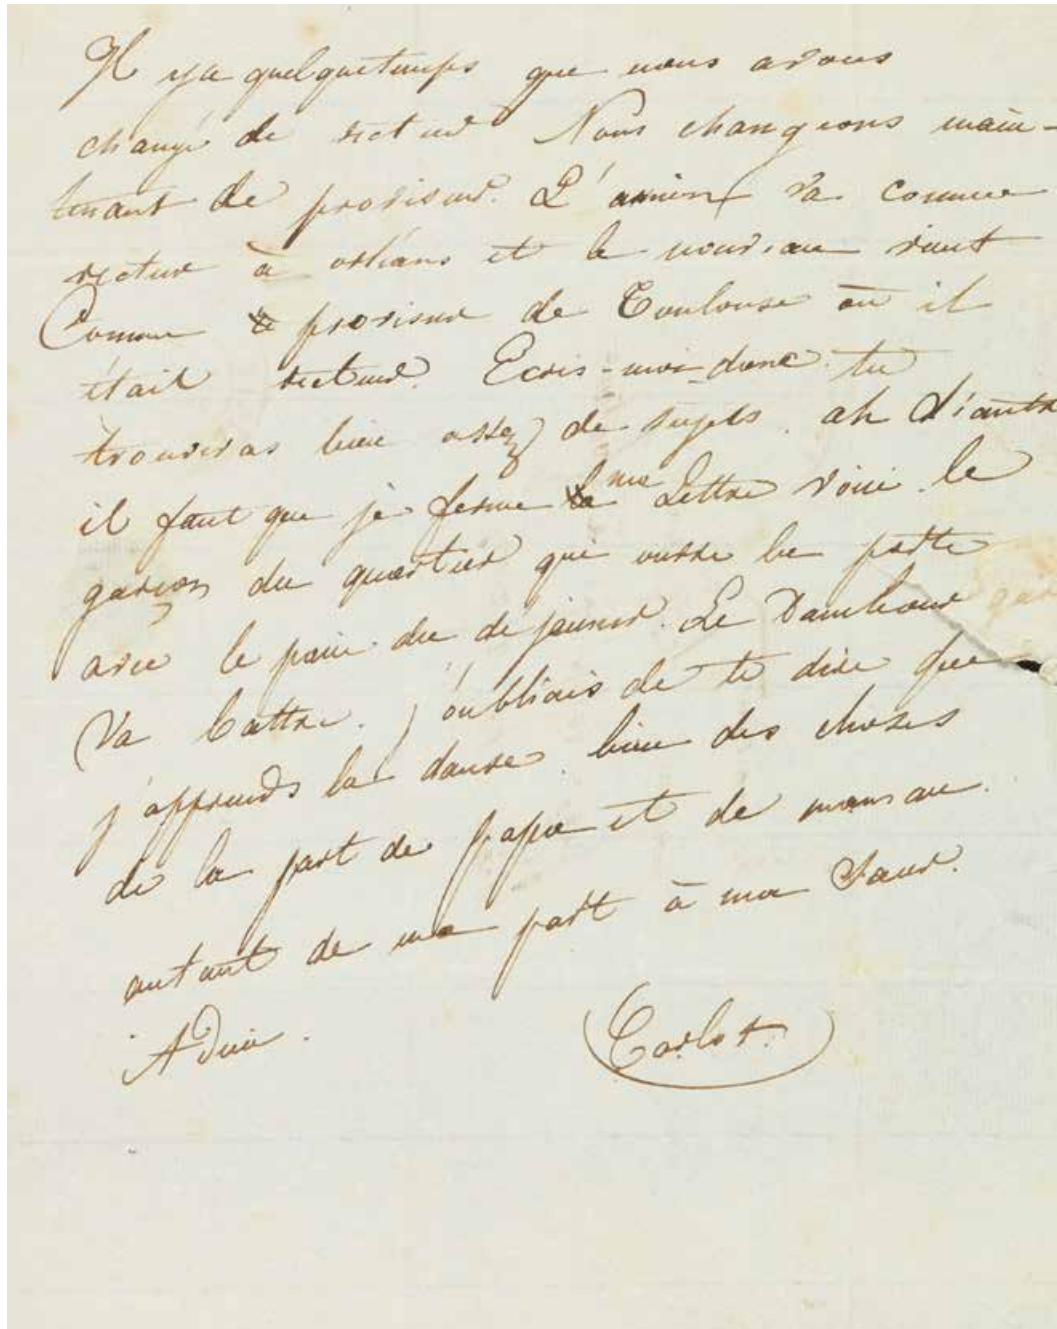 Il y a quelque temps que nous avons
changé de recteur Nous changeons main-
tenant de proviseur. L'ancien va comme
recteur à orléans et le nouveau vient
Comme proviseur de Toulouse où il
était recteur. Ecris-moi donc. tu
trouveras bien assez de sujets. ah diantre
il faut que je ferme ma Lettre voici le
garçon du quartier que ouvre la porte
avec le pain du dejeuner. Le Tambour
Va battre. J'oubliais de te dire que
j'apprends la danse. bien des choses
de la part de papa et de maman.
autant de ma part à ma Sœur.
Adieu. Carlot.